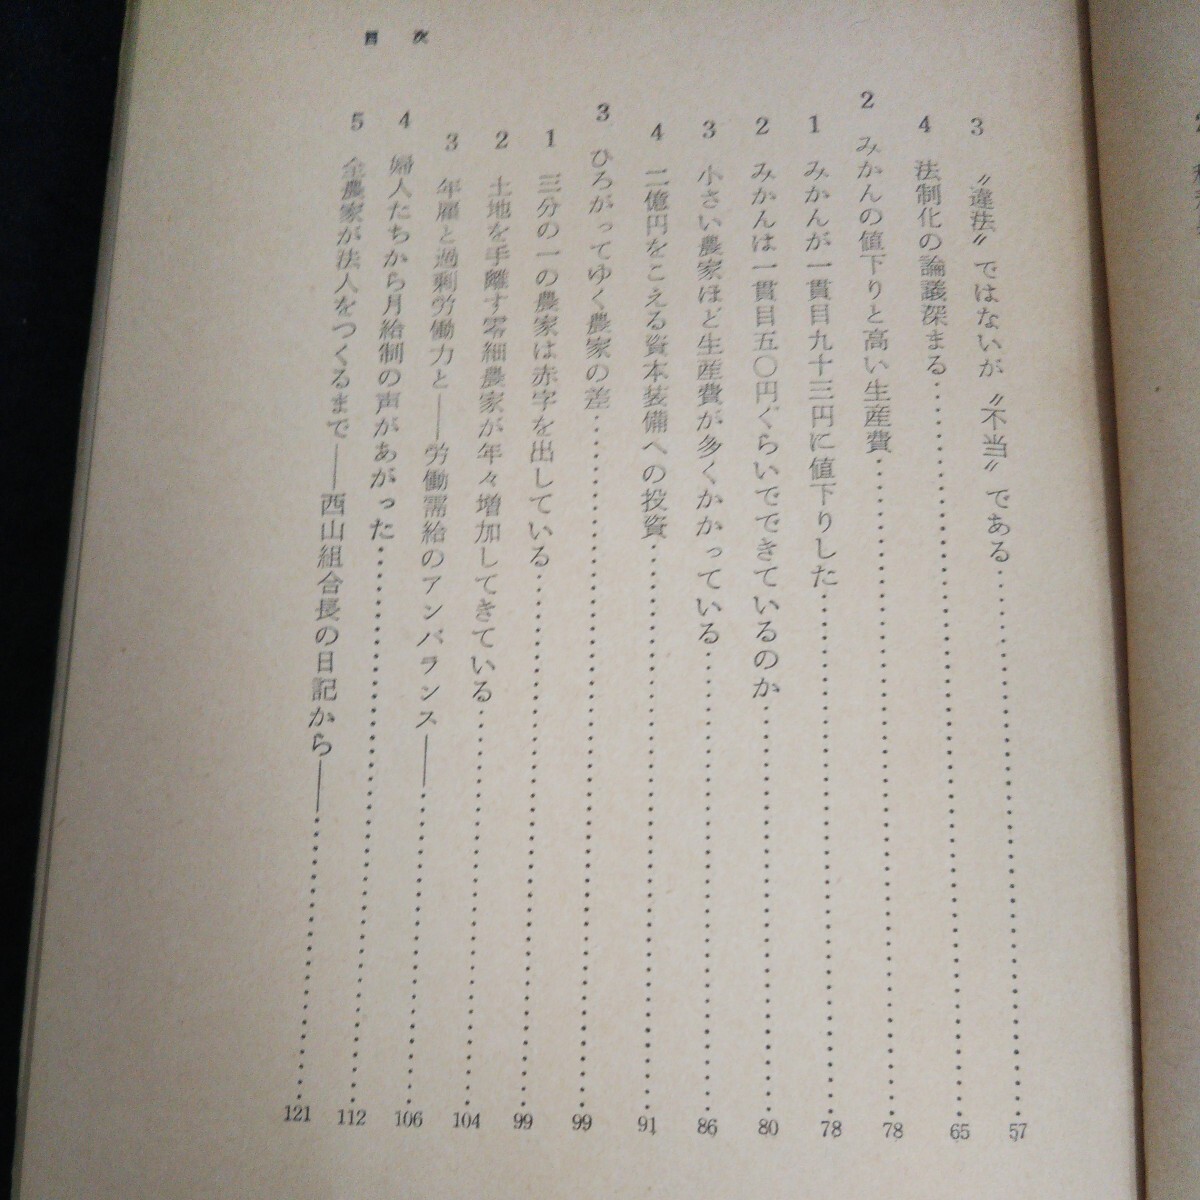 目次
3 〝違法〟ではないが〝不当〟である……57
4 法制化の論議深まる……65
2 みかんの値下りと高い生産費……78
1 みかんが一貫目九十三円に値下りした……78
2 みかんは一貫目五〇円ぐらいでできているのか……80
3 小さい農家ほど生産費が多くかかっている……86
4 二億円をこえる資本装備への投資……91
3 ひろがってゆく農家の差……99
1 三分の一の農家は赤字を出している……99
2 土地を手離す零細農家が年々増加してきている……104
3 年雇と過剰労働力と――労働需給のアンバランス――……106
4 婦人たちから月給制の声があがった……112
5 全農家が法人をつくるまで――西山組合長の日記から――……121